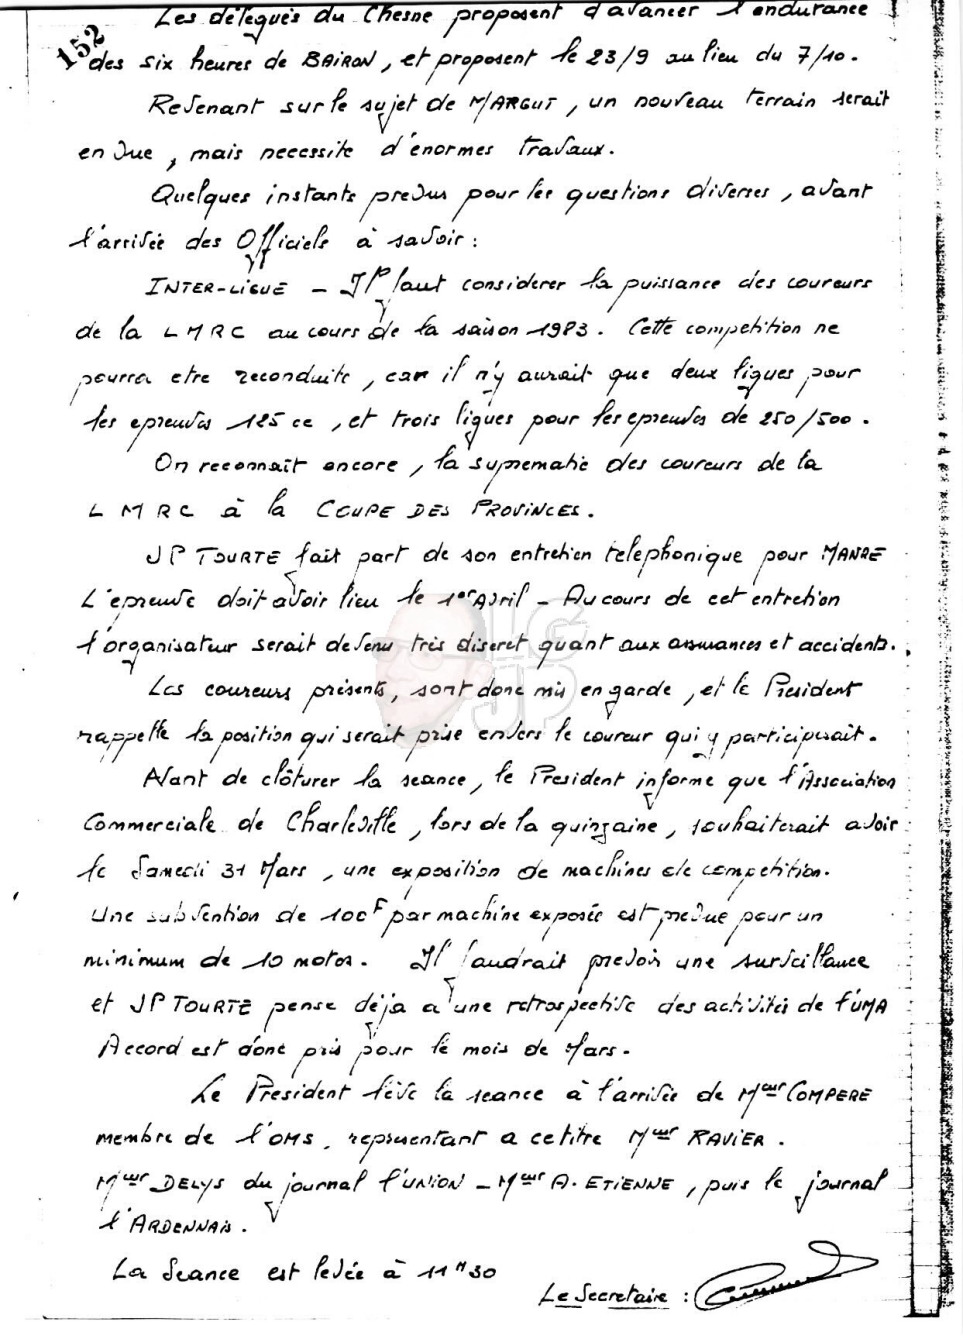 Les délégués du Chesne proposent d'avancer l'endurance
152
des six heures de BAIRON, et proposent le 23/9 au lieu du 7/10.
Revenant sur le sujet de MARGUT, un nouveau terrain serait
en vue, mais necessite d'énormes travaux.
Quelques instants prevus pour les questions diverses, avant
l'arrivée des Officiels à savoir :
INTER-LIGUE - Il faut considerer la puissance des coureurs
de la LMRC au cours de la saison 1983. Cette competition ne
pourra etre reconduite, car il n'y aurait que deux ligues pour
les epreuves 125 cc, et trois ligues pour les epreuves de 250/500.
On reconnait encore, la suprematie des coureurs de la
LMRC à la COUPE DES PROVINCES.
JP TOURTE fait part de son entretien telephonique pour MANRE
L'epreuve doit avoir lieu le 1er Avril - Au cours de cet entretien
l'organisateur serait devenu très discret quant aux assurances et accidents.
Les coureurs présents, sont donc mis en garde, et le President
rappelle la position qui serait prise envers le coureur qui y participerait.
Avant de clôturer la seance, le President informe que l'Association
Commerciale de Charleville, lors de la quinzaine, souhaiterait avoir
le Samedi 31 Mars, une exposition de machines de competition.
Une subvention de 100F par machine exposée est prevue pour un
minimum de 10 motos. Il faudrait prevoir une surveillance
et JP TOURTE pense déja a une retrospective des activités de l'UMA
Accord est donc pris pour le mois de Mars.
Le President lève la seance à l'arrivée de Meur COMPERE
membre de l'OMS, representant a ce titre Meur RAVIER.
Meur DELYS du journal l'UNION - Meur A. ETIENNE, puis le journal
l'ARDENNAIS.
La Seance est levée à 11H30
Le Secretaire :
LG
JP